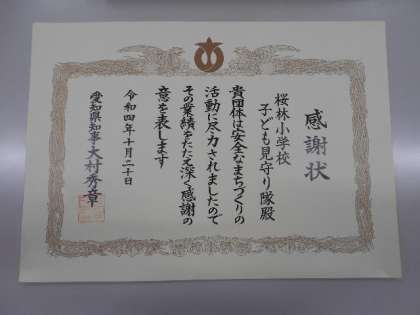 感謝状
桜林小学校
子ども見守り隊殿
貴団体は安全なまちづくりの
活動に尽力されましたので
その業績をたたえ深く感謝の
意を表します
令和四年十月二十日
愛知県知事大村秀章